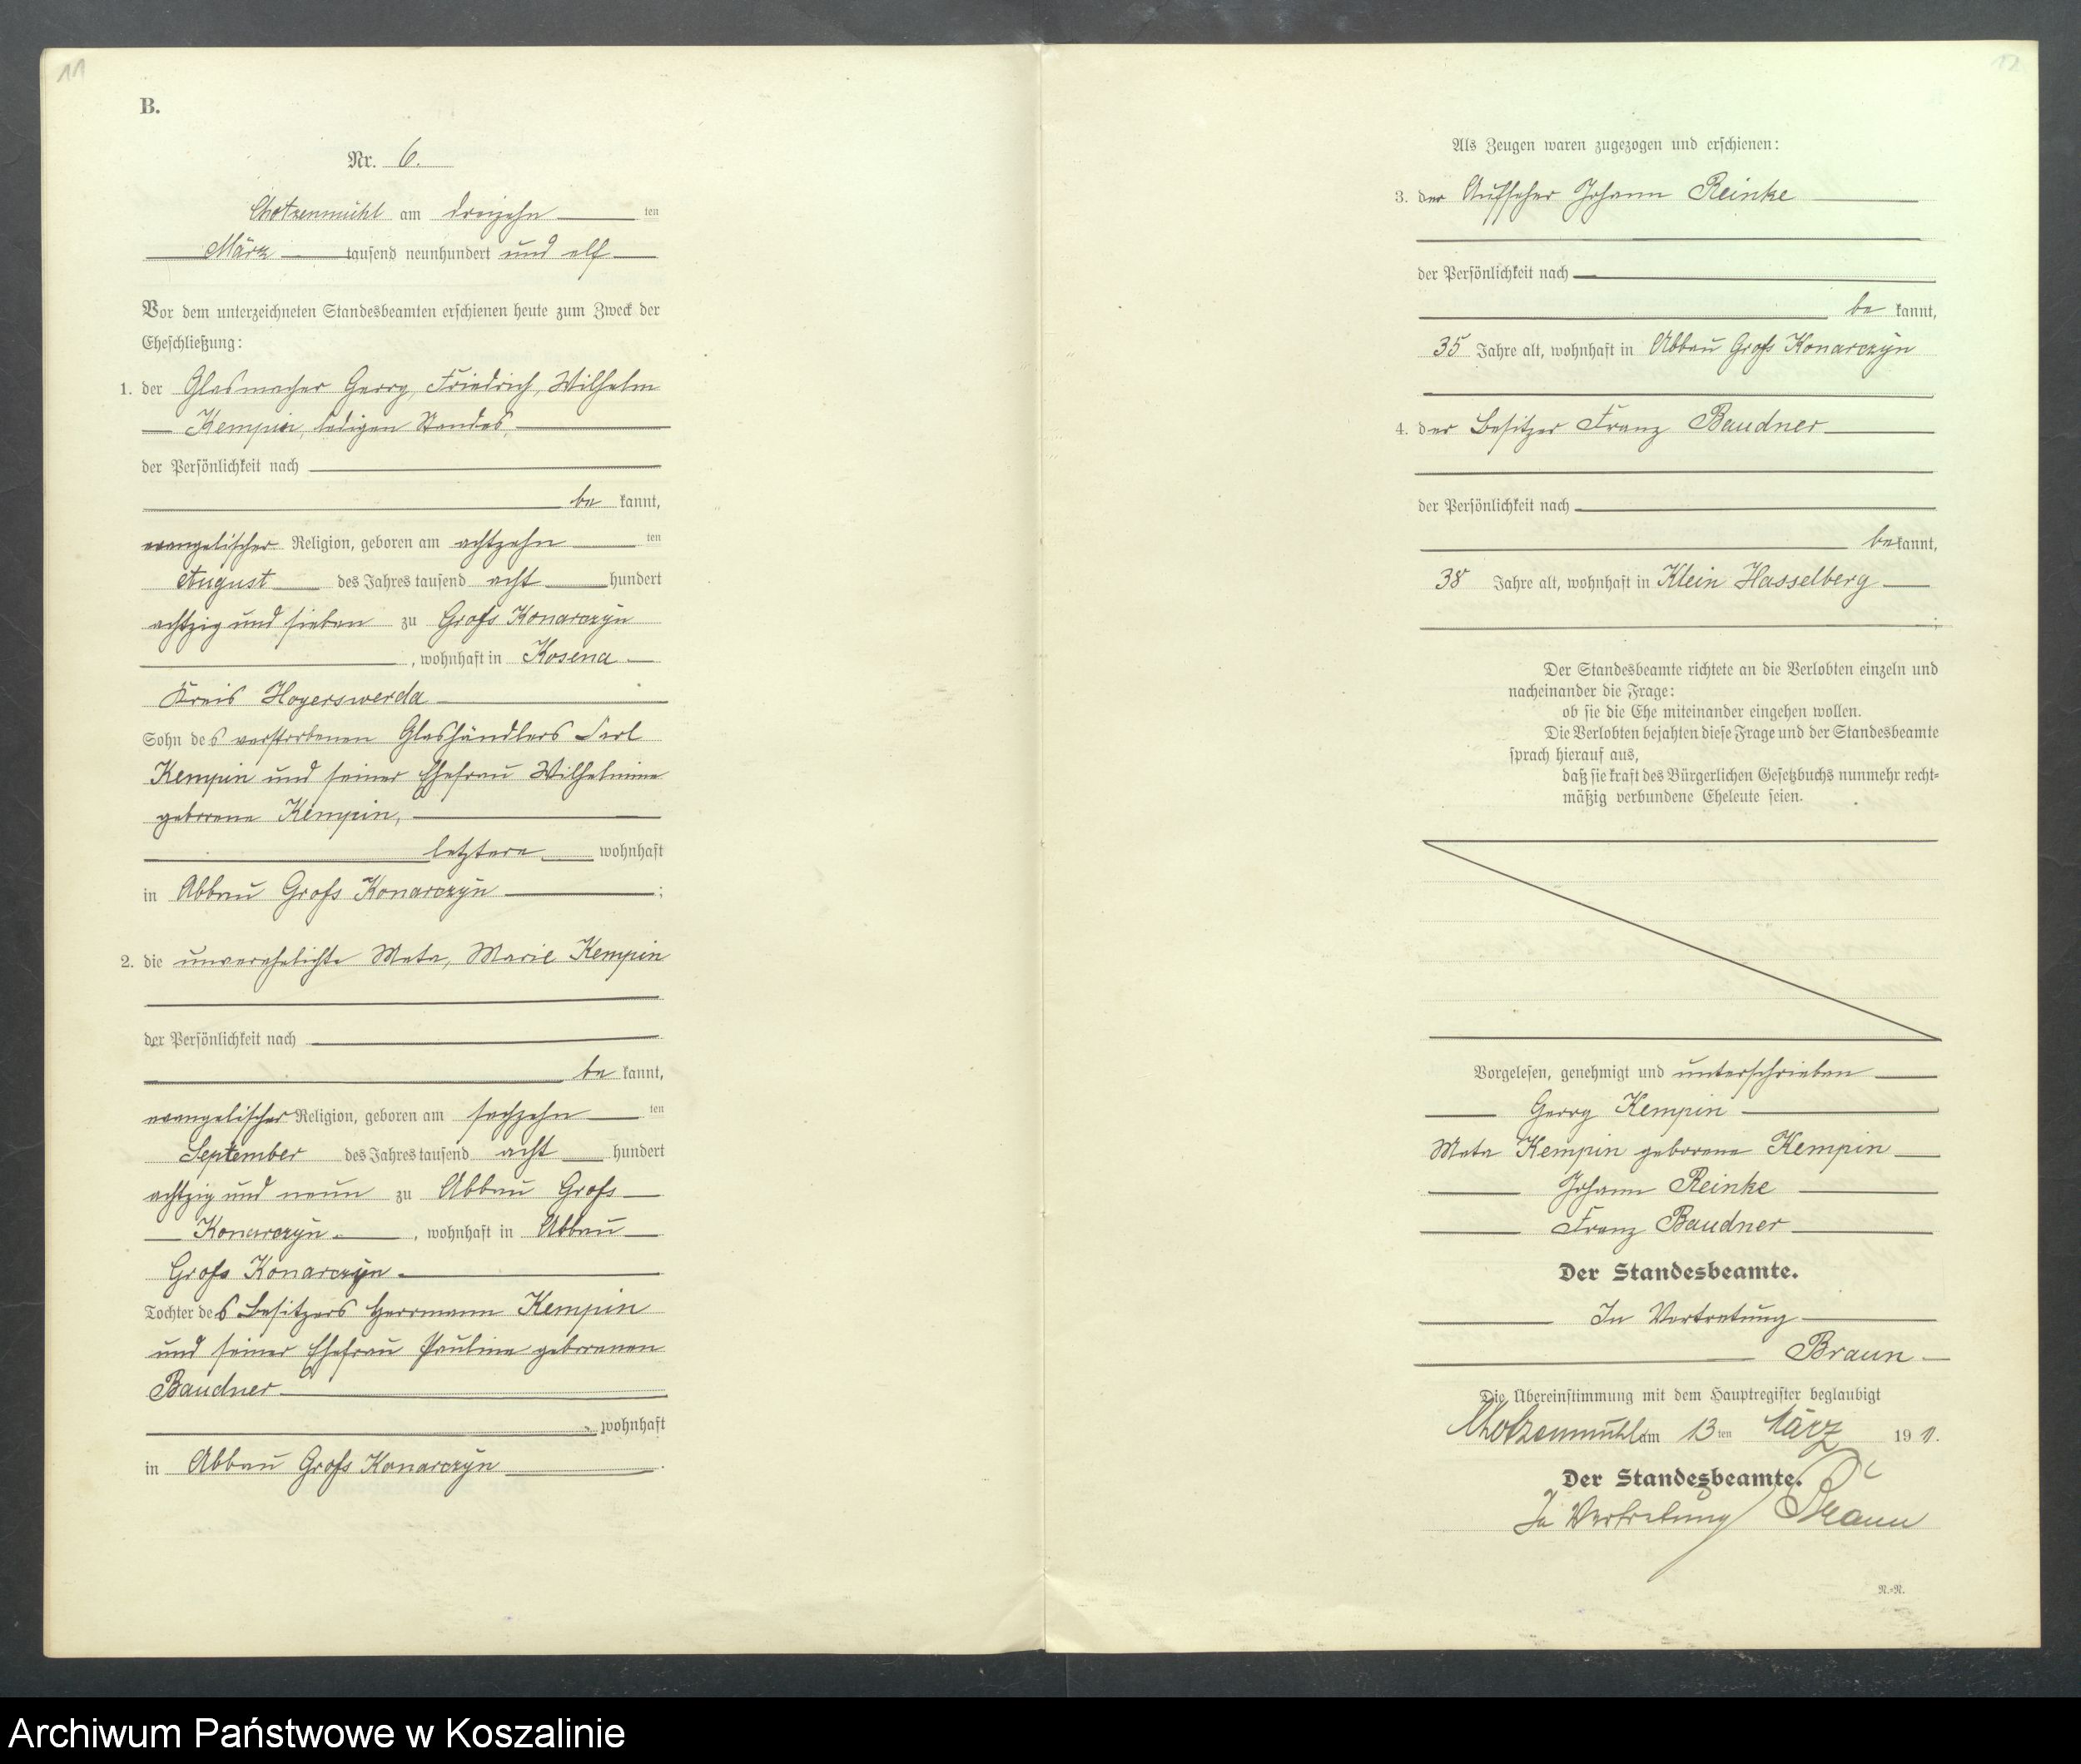 11
B.
Nr. 6.
Chotzenmühl am dreizehn ten
März tausend neunhundert und elf
Vor dem unterzeichneten Standesbeamten erschienen heute zum Zweck der
Eheschließung:
1. der Glasmacher Georg, Friedrich, Wilhelm
Kempin, ledigen Standes,
der Persönlichkeit nach
be kannt,
evangelischer Religion, geboren am achtzehn ten
August des Jahres tausend acht hundert
achtzig und sieben zu Groß Konarczyn
, wohnhaft in Kosena
Kreis Hoyerswerda
Sohn des verstorbenen Glashändlers Carl
Kempin und seiner Ehefrau Wilhelmine
geborene Kempin,
letztere wohnhaft
in Abbau Groß Konarczyn ;
2. die unverehelichte Meta, Marie Kempin
der Persönlichkeit nach
be kannt,
evangelischer Religion, geboren am sechzehn ten
September des Jahres tausend acht hundert
achtzig und neun zu Abbau Groß
Konarczyn , wohnhaft in Abbau
Groß Konarczyn
Tochter des Besitzers Herrmann Kempin
und seiner Ehefrau Pauline geborenen
Baudner
, wohnhaft
in Abbau Groß Konarczyn .
12
Als Zeugen waren zugezogen und erschienen:
3. der Aufseher Johann Reinke
der Persönlichkeit nach
be kannt,
35 Jahre alt, wohnhaft in Abbau Groß Konarczyn
4. der Besitzer Franz Baudner
der Persönlichkeit nach
be kannt,
38 Jahre alt, wohnhaft in Klein Hasselberg
;
Der Standesbeamte richtete an die Verlobten einzeln und
nacheinander die Frage:
ob sie die Ehe miteinander eingehen wollen.
Die Verlobten bejahten diese Frage und der Standesbeamte
sprach hierauf aus,
daß sie kraft des Bürgerlichen Gesetzbuchs nunmehr recht-
mäßig verbundene Eheleute seien.
Vorgelesen, genehmigt und unterschrieben
Georg Kempin
Meta Kempin geborene Kempin
Johann Reinke
Franz Baudner
Der Standesbeamte.
In Vertretung
Braun
Die Übereinstimmung mit dem Hauptregister beglaubigt
Chotzenmühl am 13 ten März 1911.
Der Standesbeamte.
In Vertretung Braun
N.-N.
Archiwum Państwowe w Koszalinie